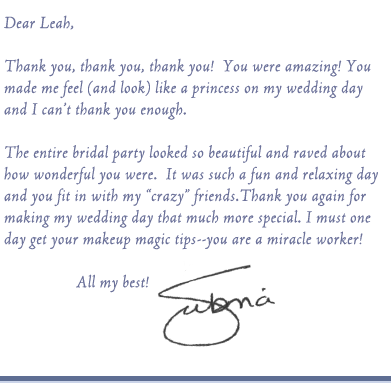 Dear Leah,
Thank you, thank you, thank you! You were amazing! You
made me feel (and look) like a princess on my wedding day
and I can't thank you enough.
The entire bridal party looked so beautiful and raved about
how wonderful you were. It was such a fun and relaxing day
and you fit in with my “crazy” friends.Thank you again for
making my wedding day that much more special. I must one
day get your makeup magic tips--you are a miracle worker!
All my best!